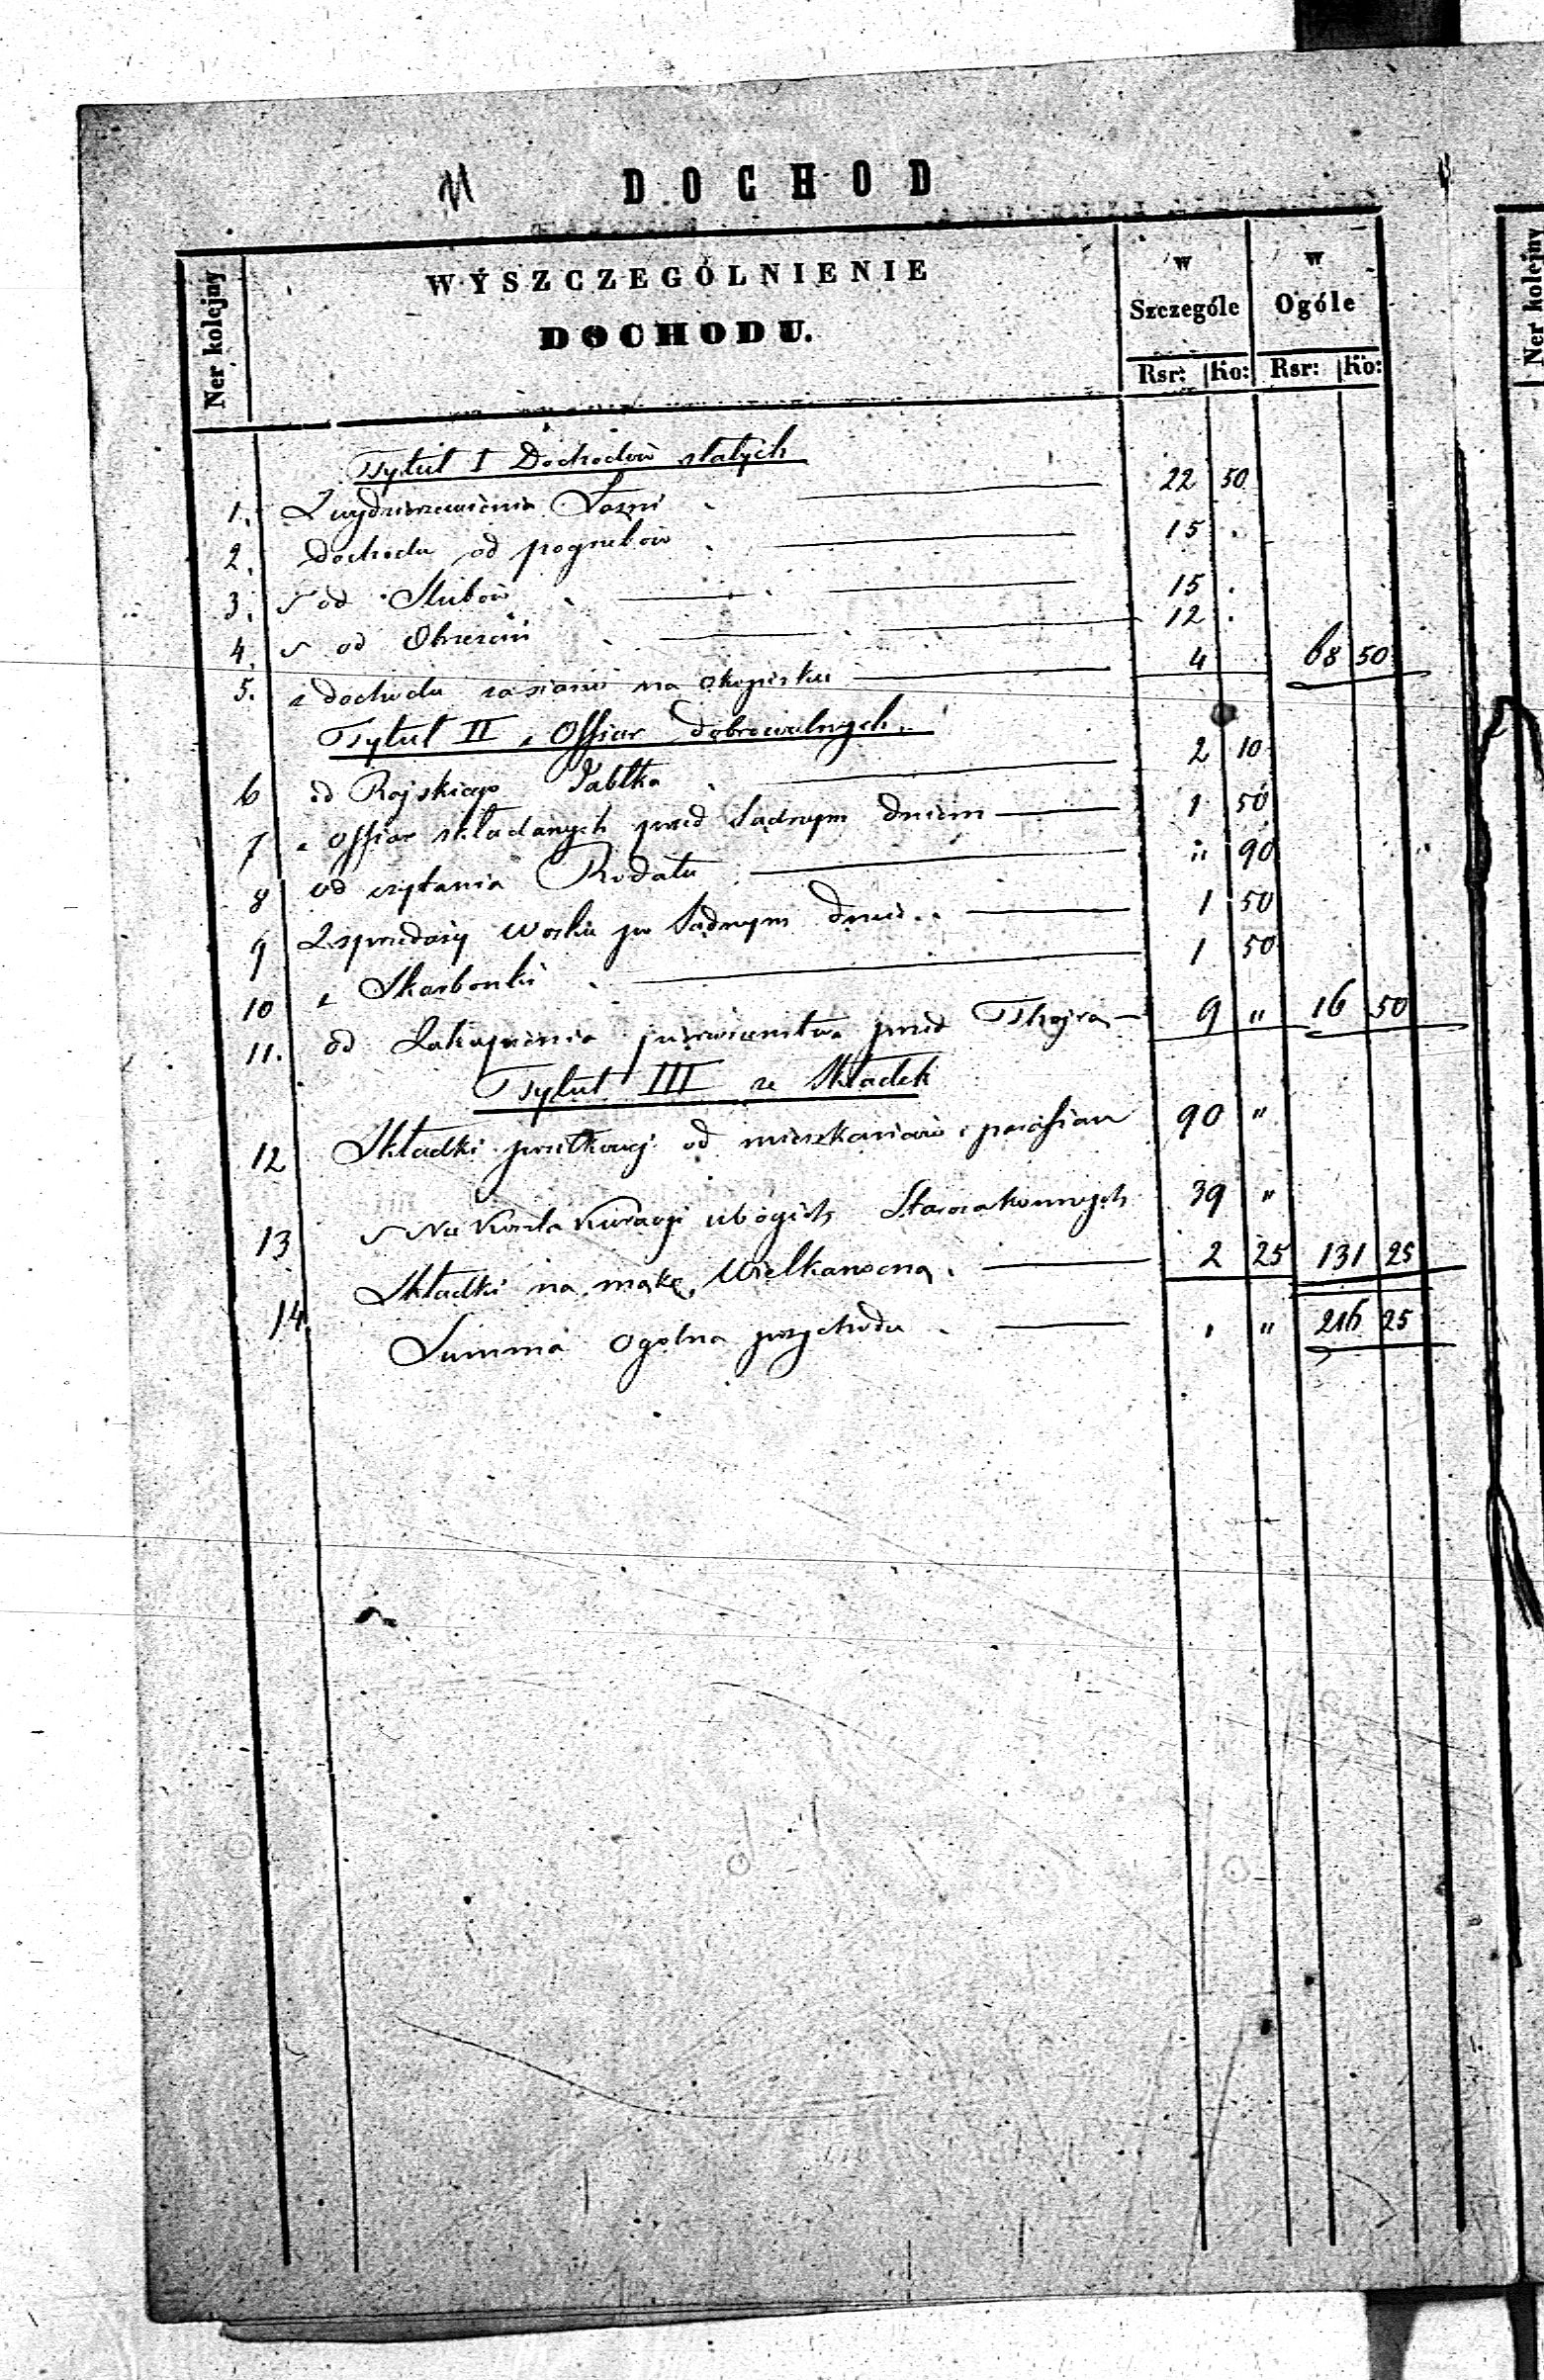 11
DOCHOD
Ner kolejny
WYSZCZEGÓLNIENIE
DOCHODU.
w Szczególe
w Ogóle
Rsr: Ko: Rsr: Ko:
Tytuł I Dochodów stałych
1. Z wydzierzawienia Łazni . 22 50
2. Dochodu od pogrzebów . 15 .
3. " od Slubów . 15 .
4. " od Obrzezań . 12 .
5. z dochodu zasiania na Okopisku 4 68 50
Tytuł II z Offiar dobrowolnych.
6 od Rajskiego Jabłka . 2 10
7 z Offiar składanych przed Sądnym dniem 1 50
8 od czytania Rodału . " 90
9 Z sprzedaży Wosku po Sądnym dniu . 1 50
10 z Skarbonki . 1 50
11. od Zakupienia pierwszenstwa przed 9 " 16 50
Tytuł III ze Składek
12 Składki od mieszkanców i parafian 90 "
13 " Na Koszta Kuracyi ubogich Starozakonnych 39 "
14 Składki na mąkę Wielkanocną . 2 25 131 25
Summa Ogolna przychodu . " " 216 25
Ner kolejny